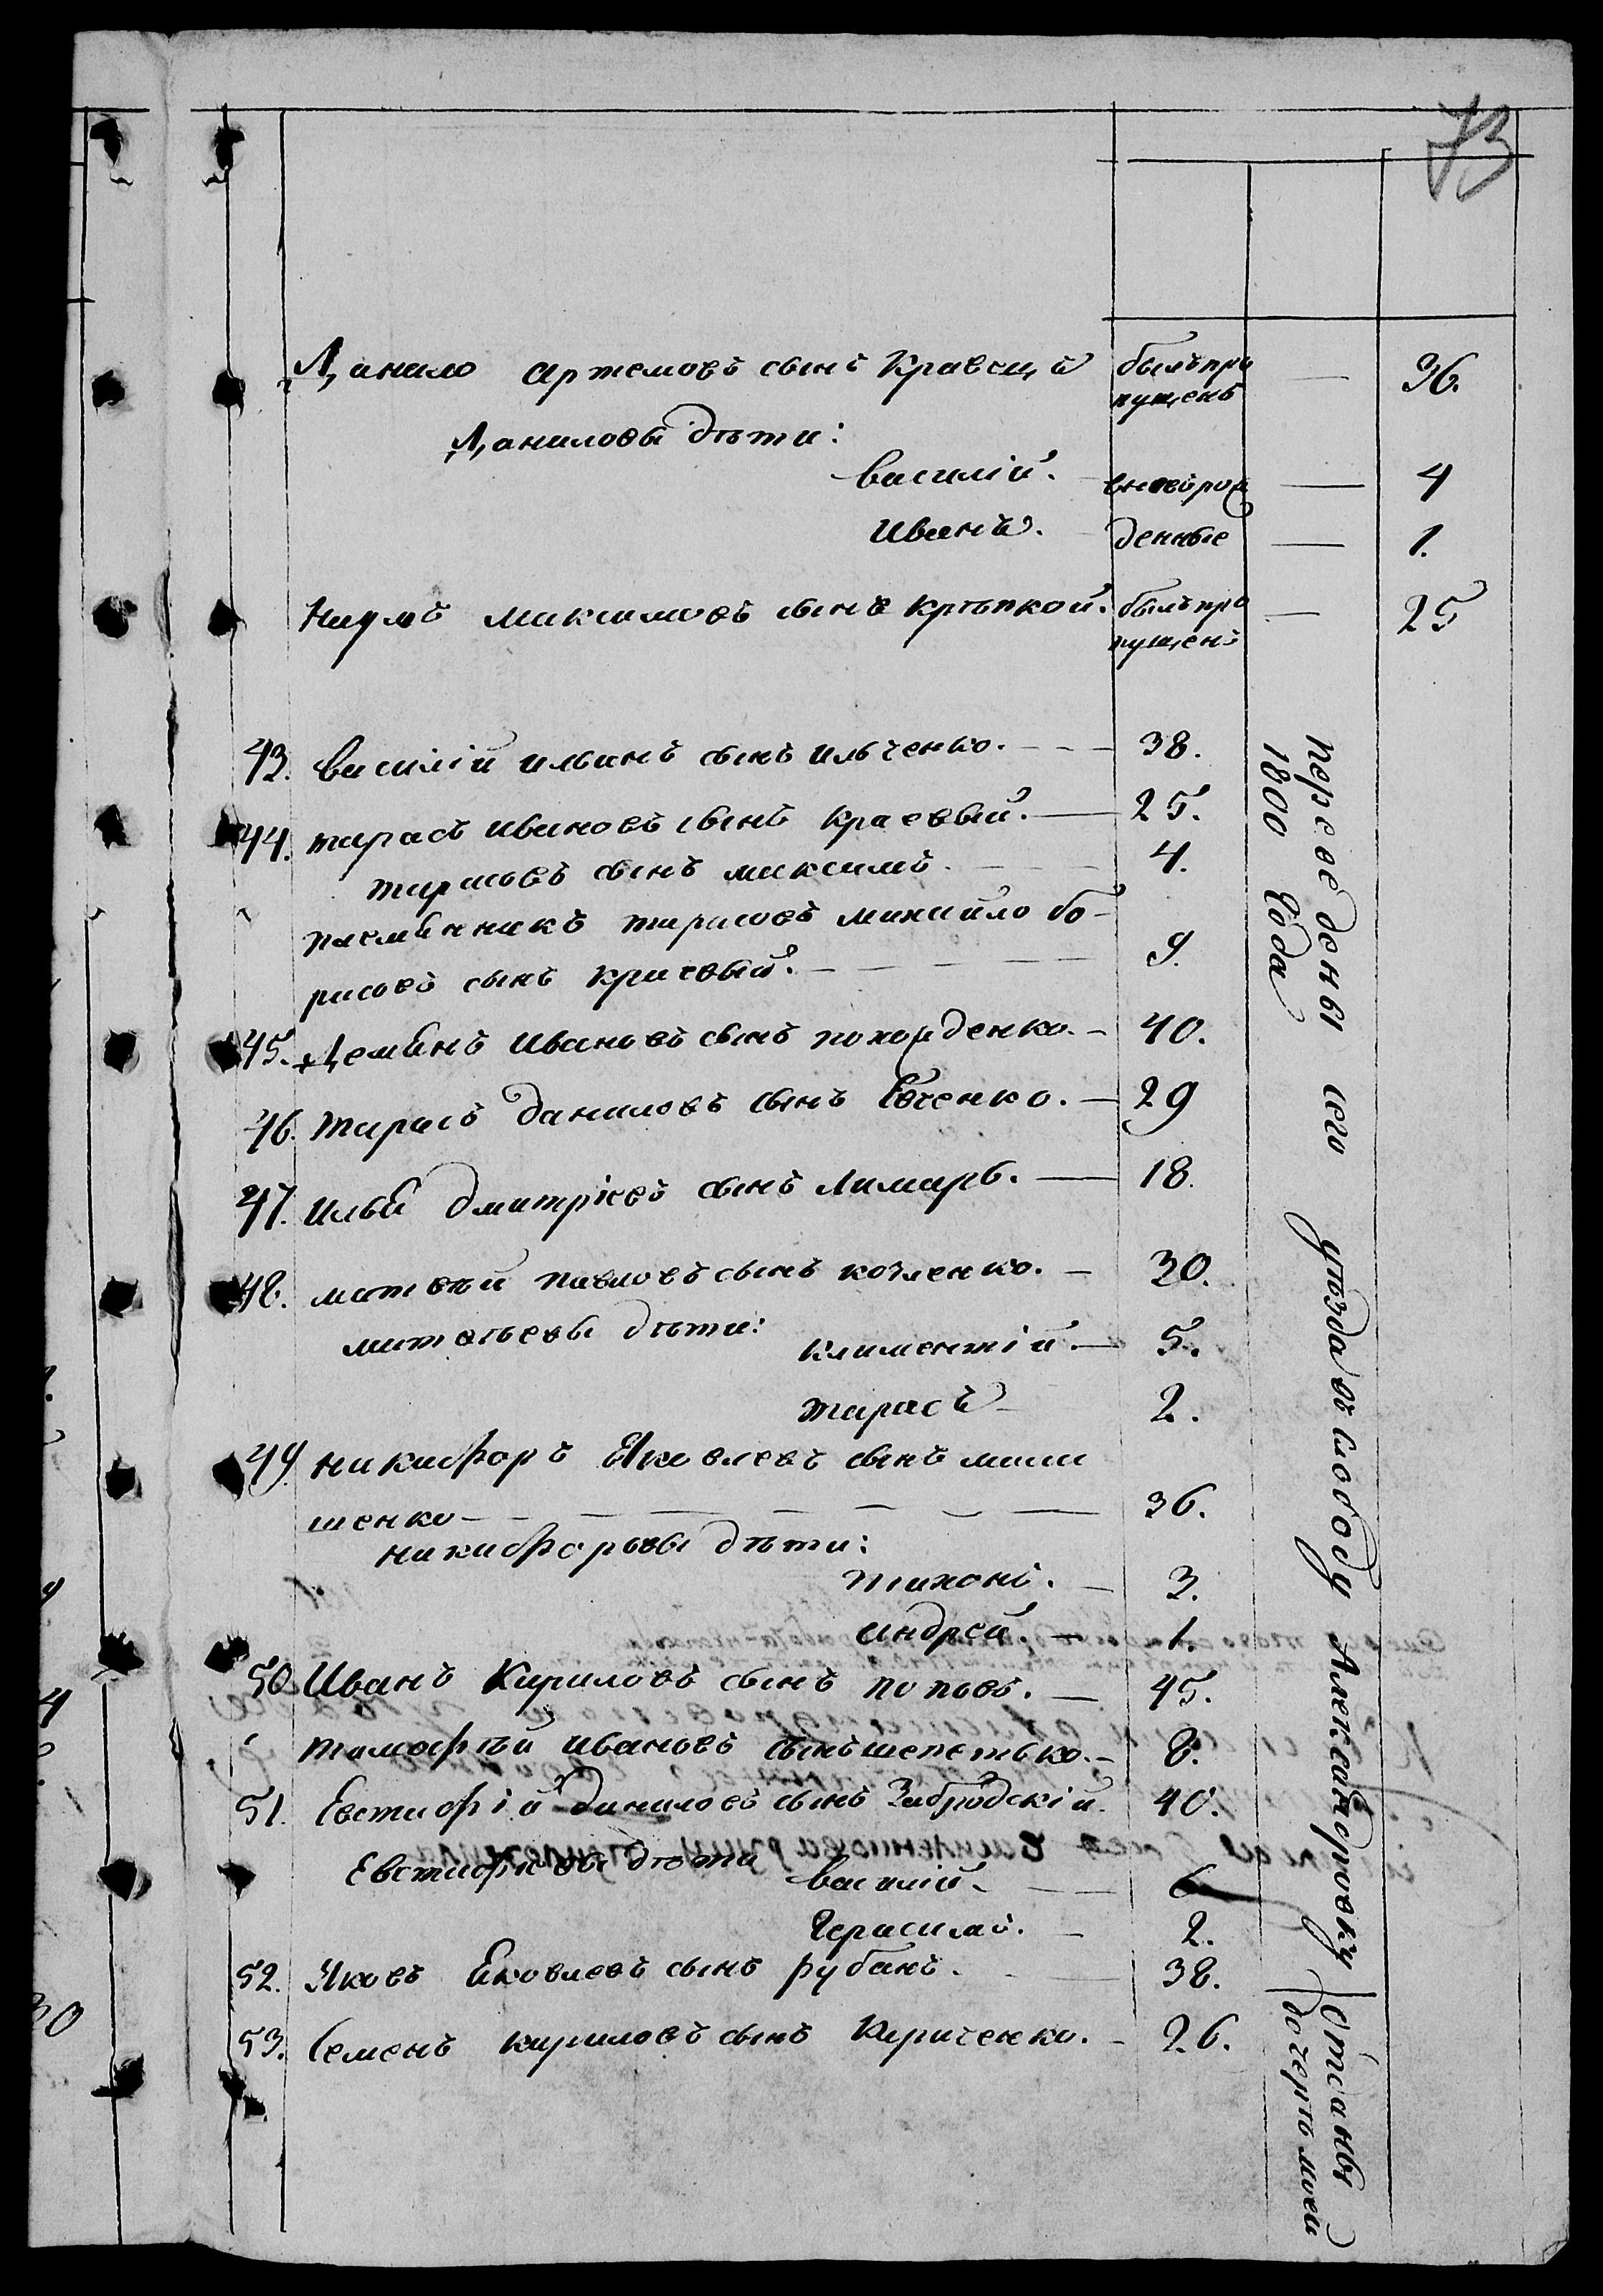 73
Данило артемовъ сынъ Кравецъ былъ про — 36.
пущенъ
Даниловы дѣти:
василий. вновь рож — 4
Иванъ. денные — 1.
Наумъ максимовъ сынъ крѣпкой. былъ про — 25
пущенъ
43. василий ильинъ сынъ ильченко. — 38.
44. тарасъ ивановъ сынъ краевый. — 25.
тарасовъ сынъ максимъ. — 4.
племянникъ тарасовъ михайло бо-
рисовъ сынъ краевый. — 9.
45. Демянъ Ивановъ сынъ походенко. — 40.
46. тарасъ даниловъ сынъ Евченко. — 29
47. илья дмитріевъ сынъ Лимарь. — 18.
48. матвѣй павловъ сынъ козленко. — 30.
матвѣевы дѣти: климентій. — 5.
тарасъ — 2.
49. никифоръ Яковлевъ сынъ
шенко — 36.
никифоровы дѣти:
тихонъ. — 3.
андрей. — 1.
50. Иванъ Кириловъ сынъ поповъ. — 45.
тимофѣй ивановъ сынъ шепетько. — 8.
51. Евстафій даниловъ сынъ Забродскій. 40.
Евстафіевы дѣти василій. — 6
Герасимъ. — 2.
52. Яковъ Яковлевъ сынъ рубанъ. 38.
53. Семенъ кириловъ сынъ Кириченко. — 26.
переведены сего уѣзда въ слободу Александровку
1800 года
отданы
дочерѣ моей